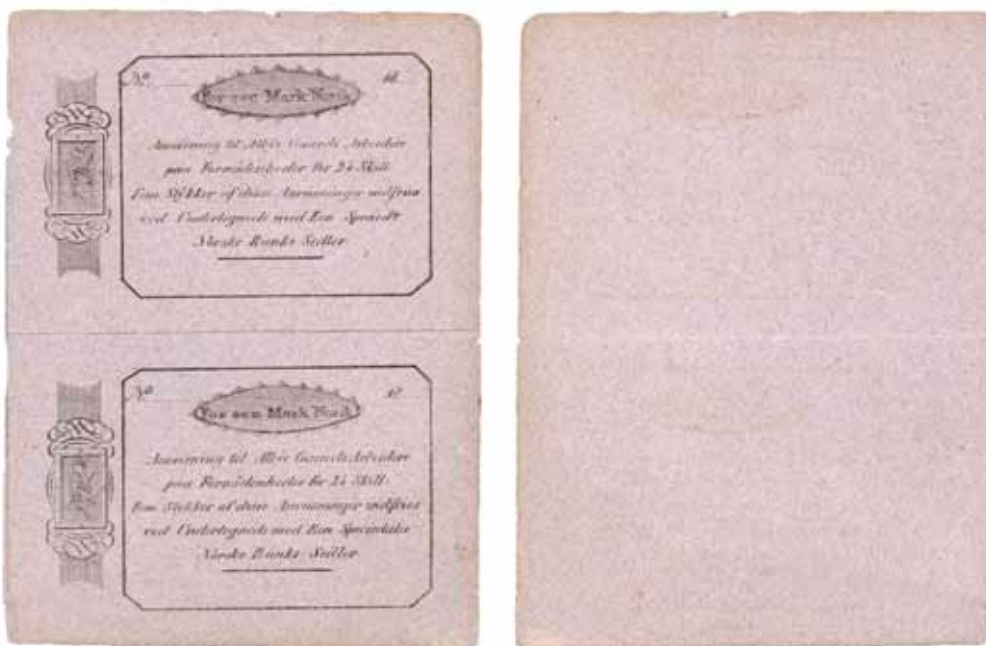 No 18
For een Mark Værd
Anviisning til Alb: Gaards Arbeider
paa Fornödenheder for 24 Skill:
Fem Stykker af disse Anviisninger indfries
ved Undertegnede med Een Speciedlr
Norske Banko Sedler
No 18
For een Mark Værd
Anviisning til Alb: Gaards Arbeider
paa Fornödenheder for 24 Skill:
Fem Stykker af disse Anviisninger indfries
ved Undertegnede med Een Speciedaler
Norske Banko Sedler